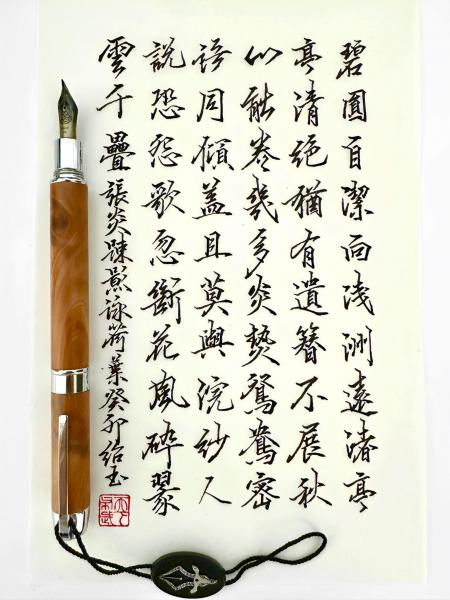 碧圓自潔向淺洲遠渚亭
亭清絕猶有遺簪不展秋
心能卷幾多炎熱鴛鴦密
語同傾蓋且莫與浣紗人
說恐怨歌忽斷花風碎翠
雲千疊 張炎疎影詠荷葉癸卯紹玉